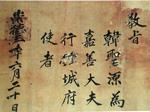 敎旨
韓源爲
嘉善大夫
行城府
使者
年六月二十日